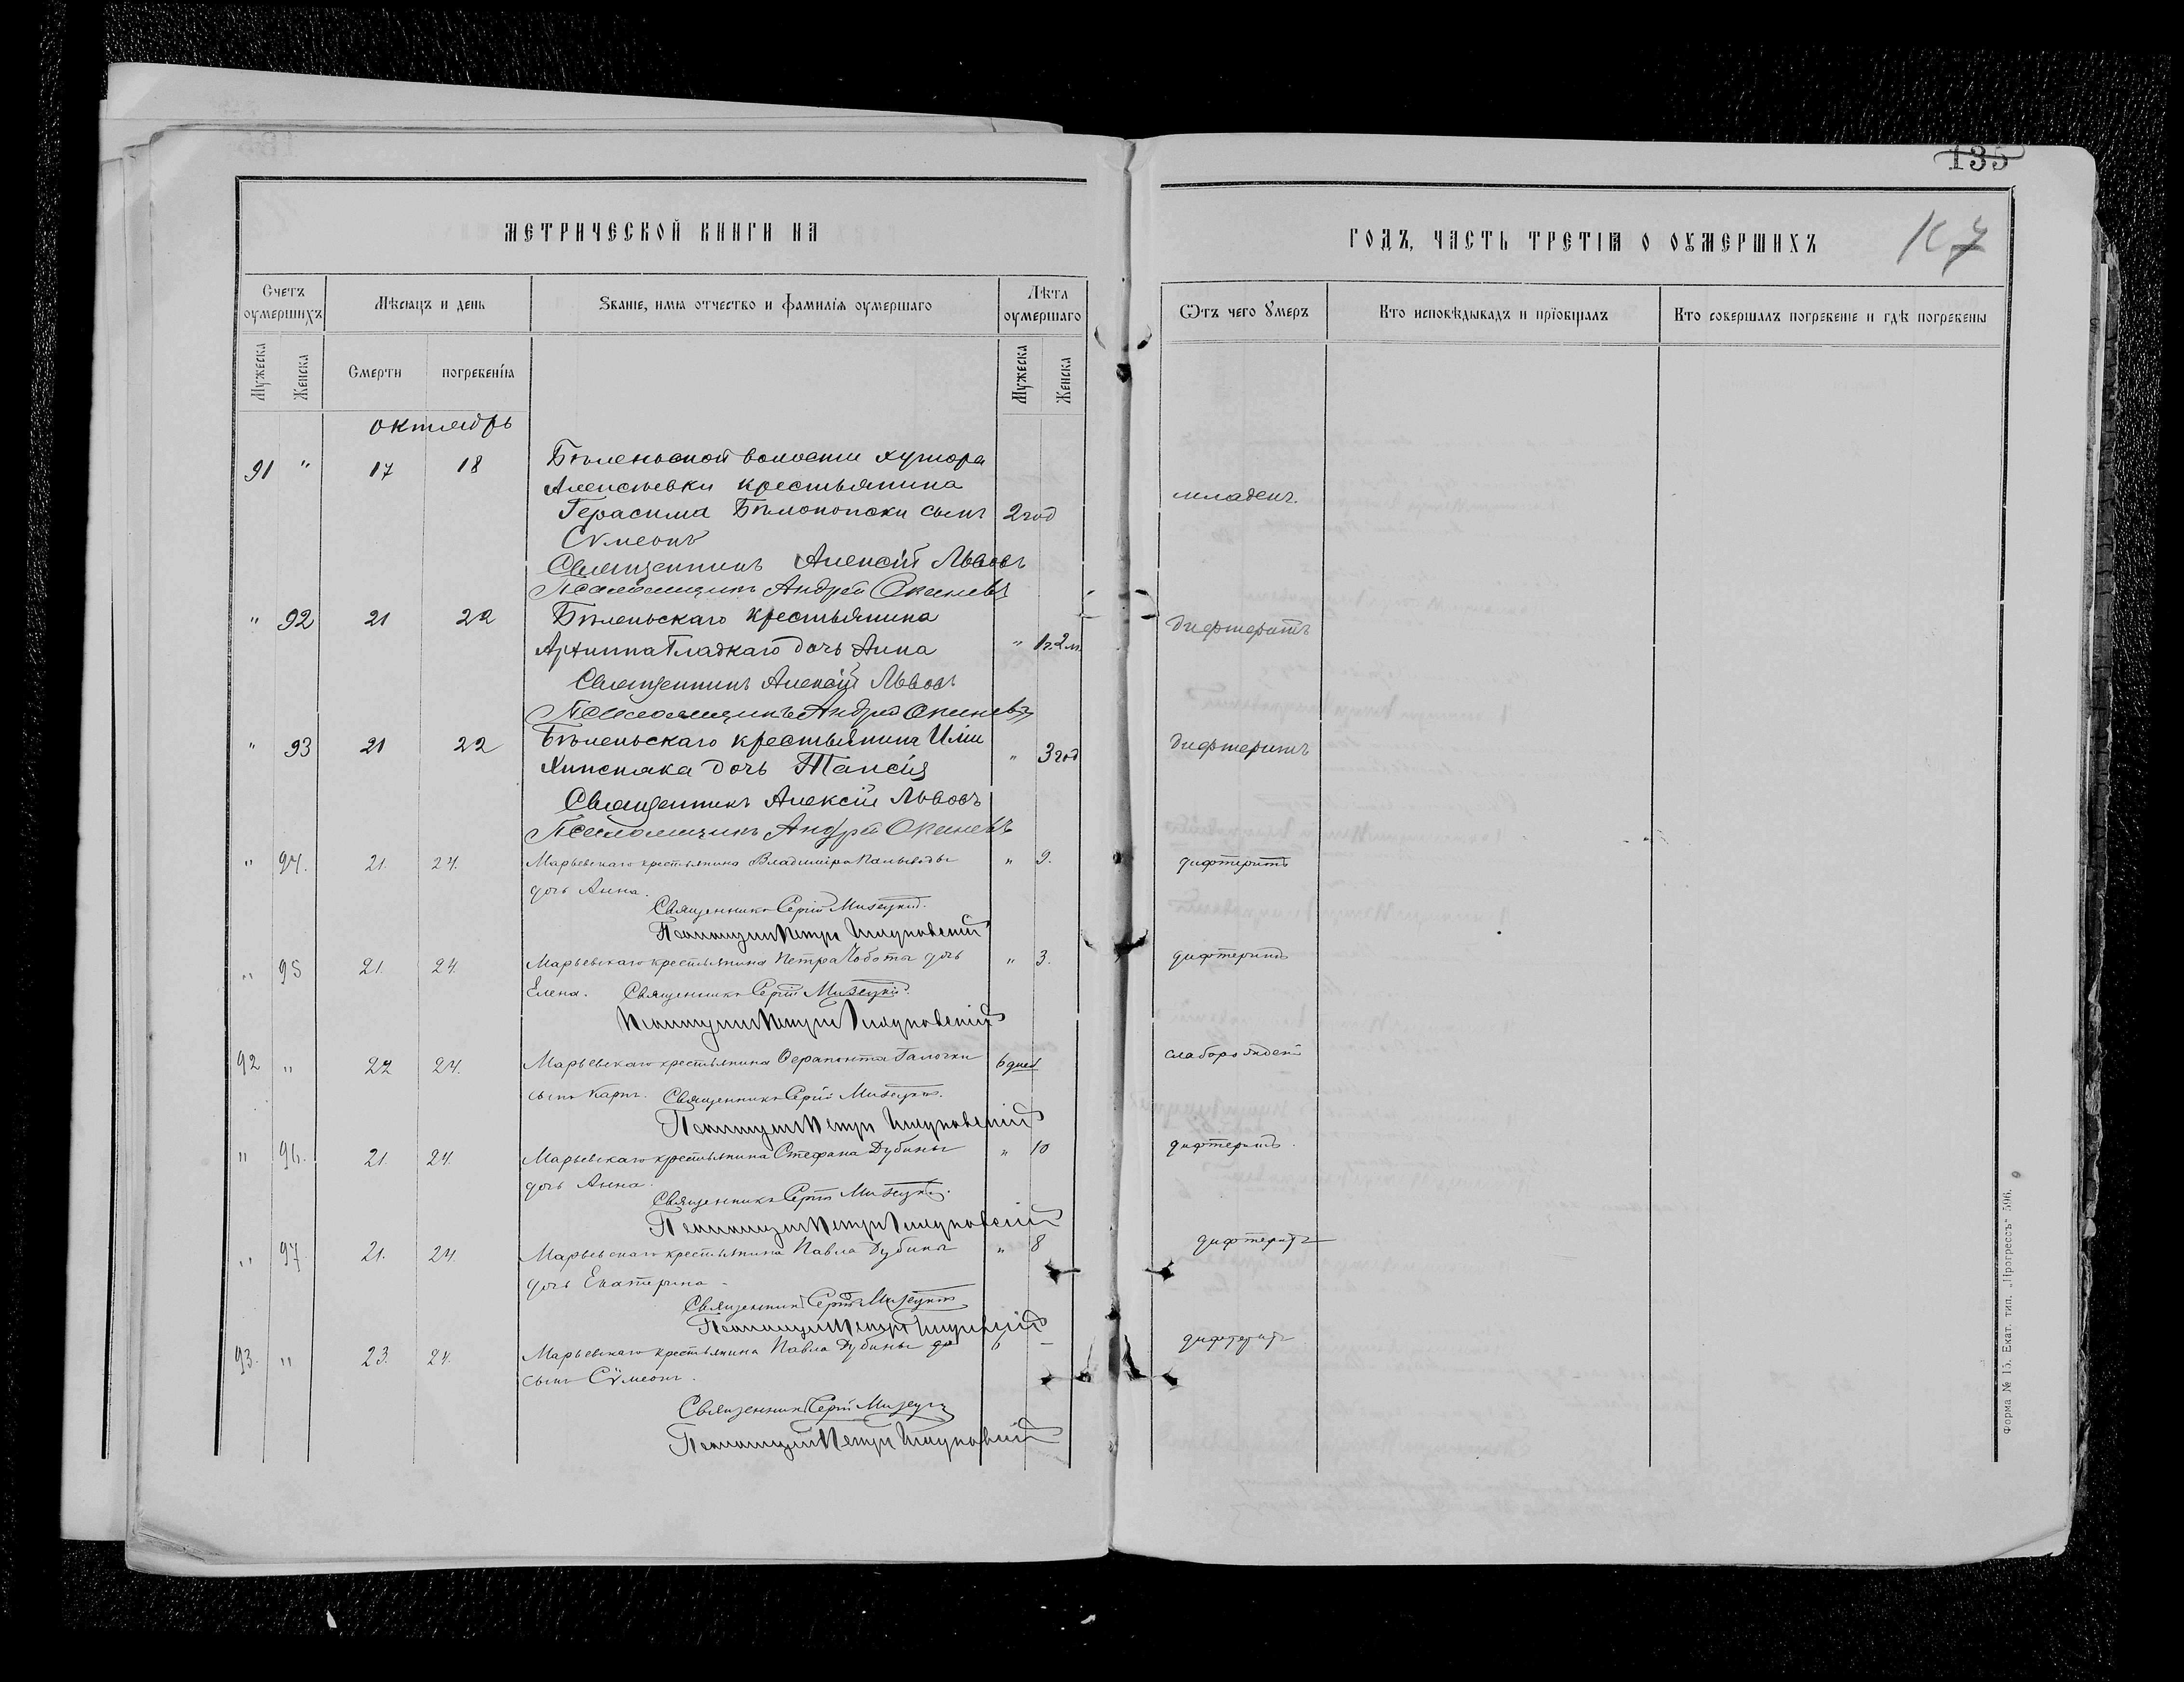 135
К7
МЕТРИЧЕСКОЙ КНИГИ НА
ГОДЪ, ЧАСТЬ ТРЕТІѦ О ОУМЕРШИХЪ
Счетъ оумершихъ
Мѣсяцъ и день
Званіе, имя отчество и фамилія оумершаго
Лѣта оумершаго
Ѿтъ чего Умеръ
Кто исповѣдывалъ и пріобщалъ
Кто совершалъ погребеніе и гдѣ погребены
Мужеска
Женска
Смерти
погребенія
Мужеска
Женска
октябрь
91 " 17 18 Бѣленьской волости хутора
Алексѣевки крестьянина
младен.
Герасима сынъ 2 год
Сѵмеонъ
Священникъ Алексій Львовъ
Псаломщикъ Андрей
" 92 21 22 Бѣленьскаго крестьянина
дифтеритъ
Архиппа Гладкаго дочь Анна " 1г. 2м.
Священникъ Алексій Львовъ
Псаломщикъ Андрей
" 93 21 22 Бѣленьскаго крестьянина Иліи
" 3 год дифтеритъ
дочь Таисія
Священникъ Алексій Львовъ
Псаломщикъ Андрей
" 94. 21. 24. Марьевскаго крестьянина Владиміра Пальводы " 9. дифтеритъ
дочь Анна.
Священникъ Сергій Мизецкій.
Псаломщикъ Петръ
" 95 21. 24 Марьевскаго крестьянина Петра Чоботы дочь " 3. дифтеритъ
Елена. Священникъ Сергій Мизецкій.
Псаломщикъ Петръ
92 " 22 24. Марьевскаго крестьянина Ферапонта Галочки 6 дней слаборожден
сынъ Карпъ. Священникъ Сергій Мизецкій.
Псаломщикъ Петръ
" 96. 21. 24. Марьевскаго крестьянина Стефана Дубины " 10 дифтеритъ.
дочь Анна.
Священникъ Сергій Мизецкій.
Псаломщикъ Петръ
" 97. 21. 24. Марьевскаго крестьянина Павла Дубины " 8 дифтеритъ
дочь Екатерина.
Священникъ Сергій Мизецкій
Псаломщикъ Петръ
93. " 23. 24. Марьевскаго крестьянина Павла Дубины 6 – дифтеритъ
сынъ Сѵмеонъ.
Священникъ Сергій Мизецкій
Псаломщикъ Петръ
Форма № 15. Екат. тип. „Прогрессъ" 596.